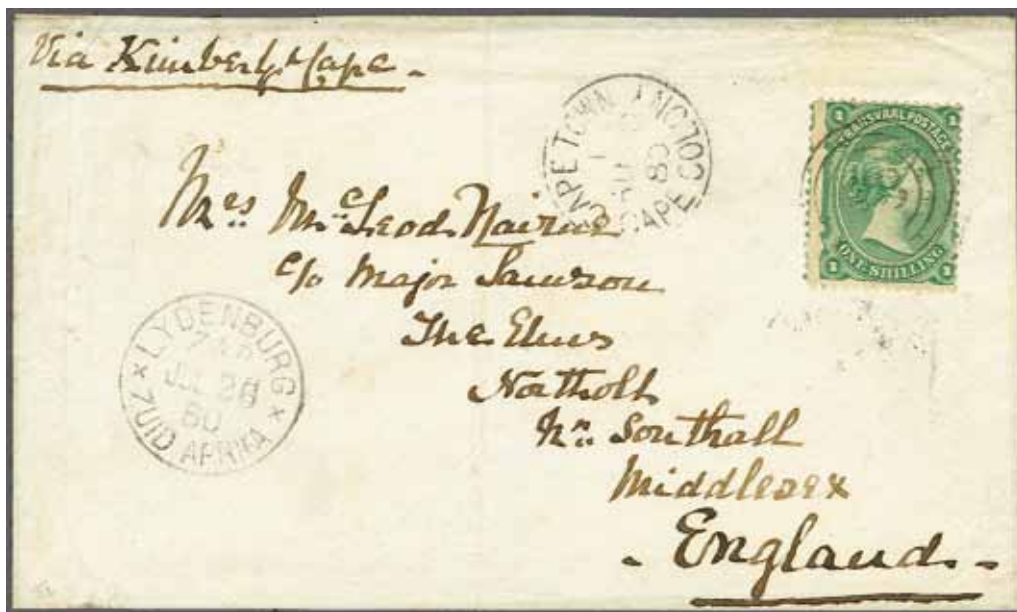 Via Kimberly & Cape -
CAPE TOWN
CAPE COLONY
80
1 TRANSVAAL POSTAGE 1
1 ONE SHILLING 1
Mrs. McLeod Nairne
c/o Major Lawson
The Elms
Northolt
Nr. Southall
Middlesex
- England. -
LYDENBURG
JUL 28
80
× ZUID AFRIKA ×